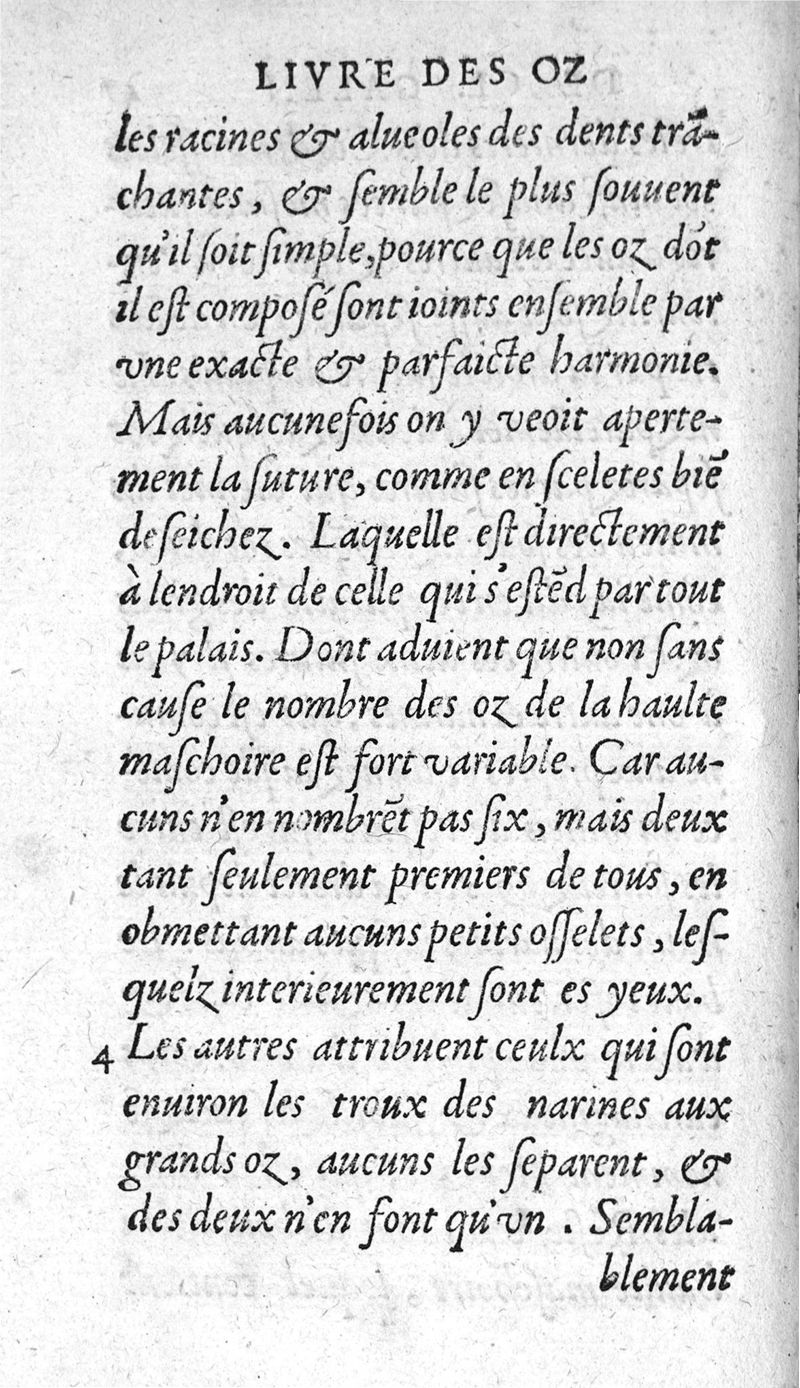 LIVRE DES OZ
les racines & alueoles des dents trā-
chantes, & ſemble le plus ſouuent
qu'il ſoit ſimple, pource que les oz dōt
il eſt compoſé ſont ioints enſemble par
vne exacte & parfaicte harmonie.
Mais aucunefois on y veoit aperte-
ment la ſuture, comme en ſceletes biē
deſeichez. Laquelle eſt directement
à lendroit de celle qui s'eſtēd par tout
le palais. Dont aduient que non ſans
cauſe le nombre des oz de la haulte
maſchoire eſt fort variable. Car au-
cuns n'en nombrēt pas ſix, mais deux
tant ſeulement premiers de tous, en
obmettant aucuns petits oſſelets, leſ-
quelz interieurement ſont es yeux.
4 Les autres attribuent ceulx qui ſont
enuiron les troux des narines aux
grands oz, aucuns les ſeparent, &
des deux n'en font qu'vn. Sembla-
blement